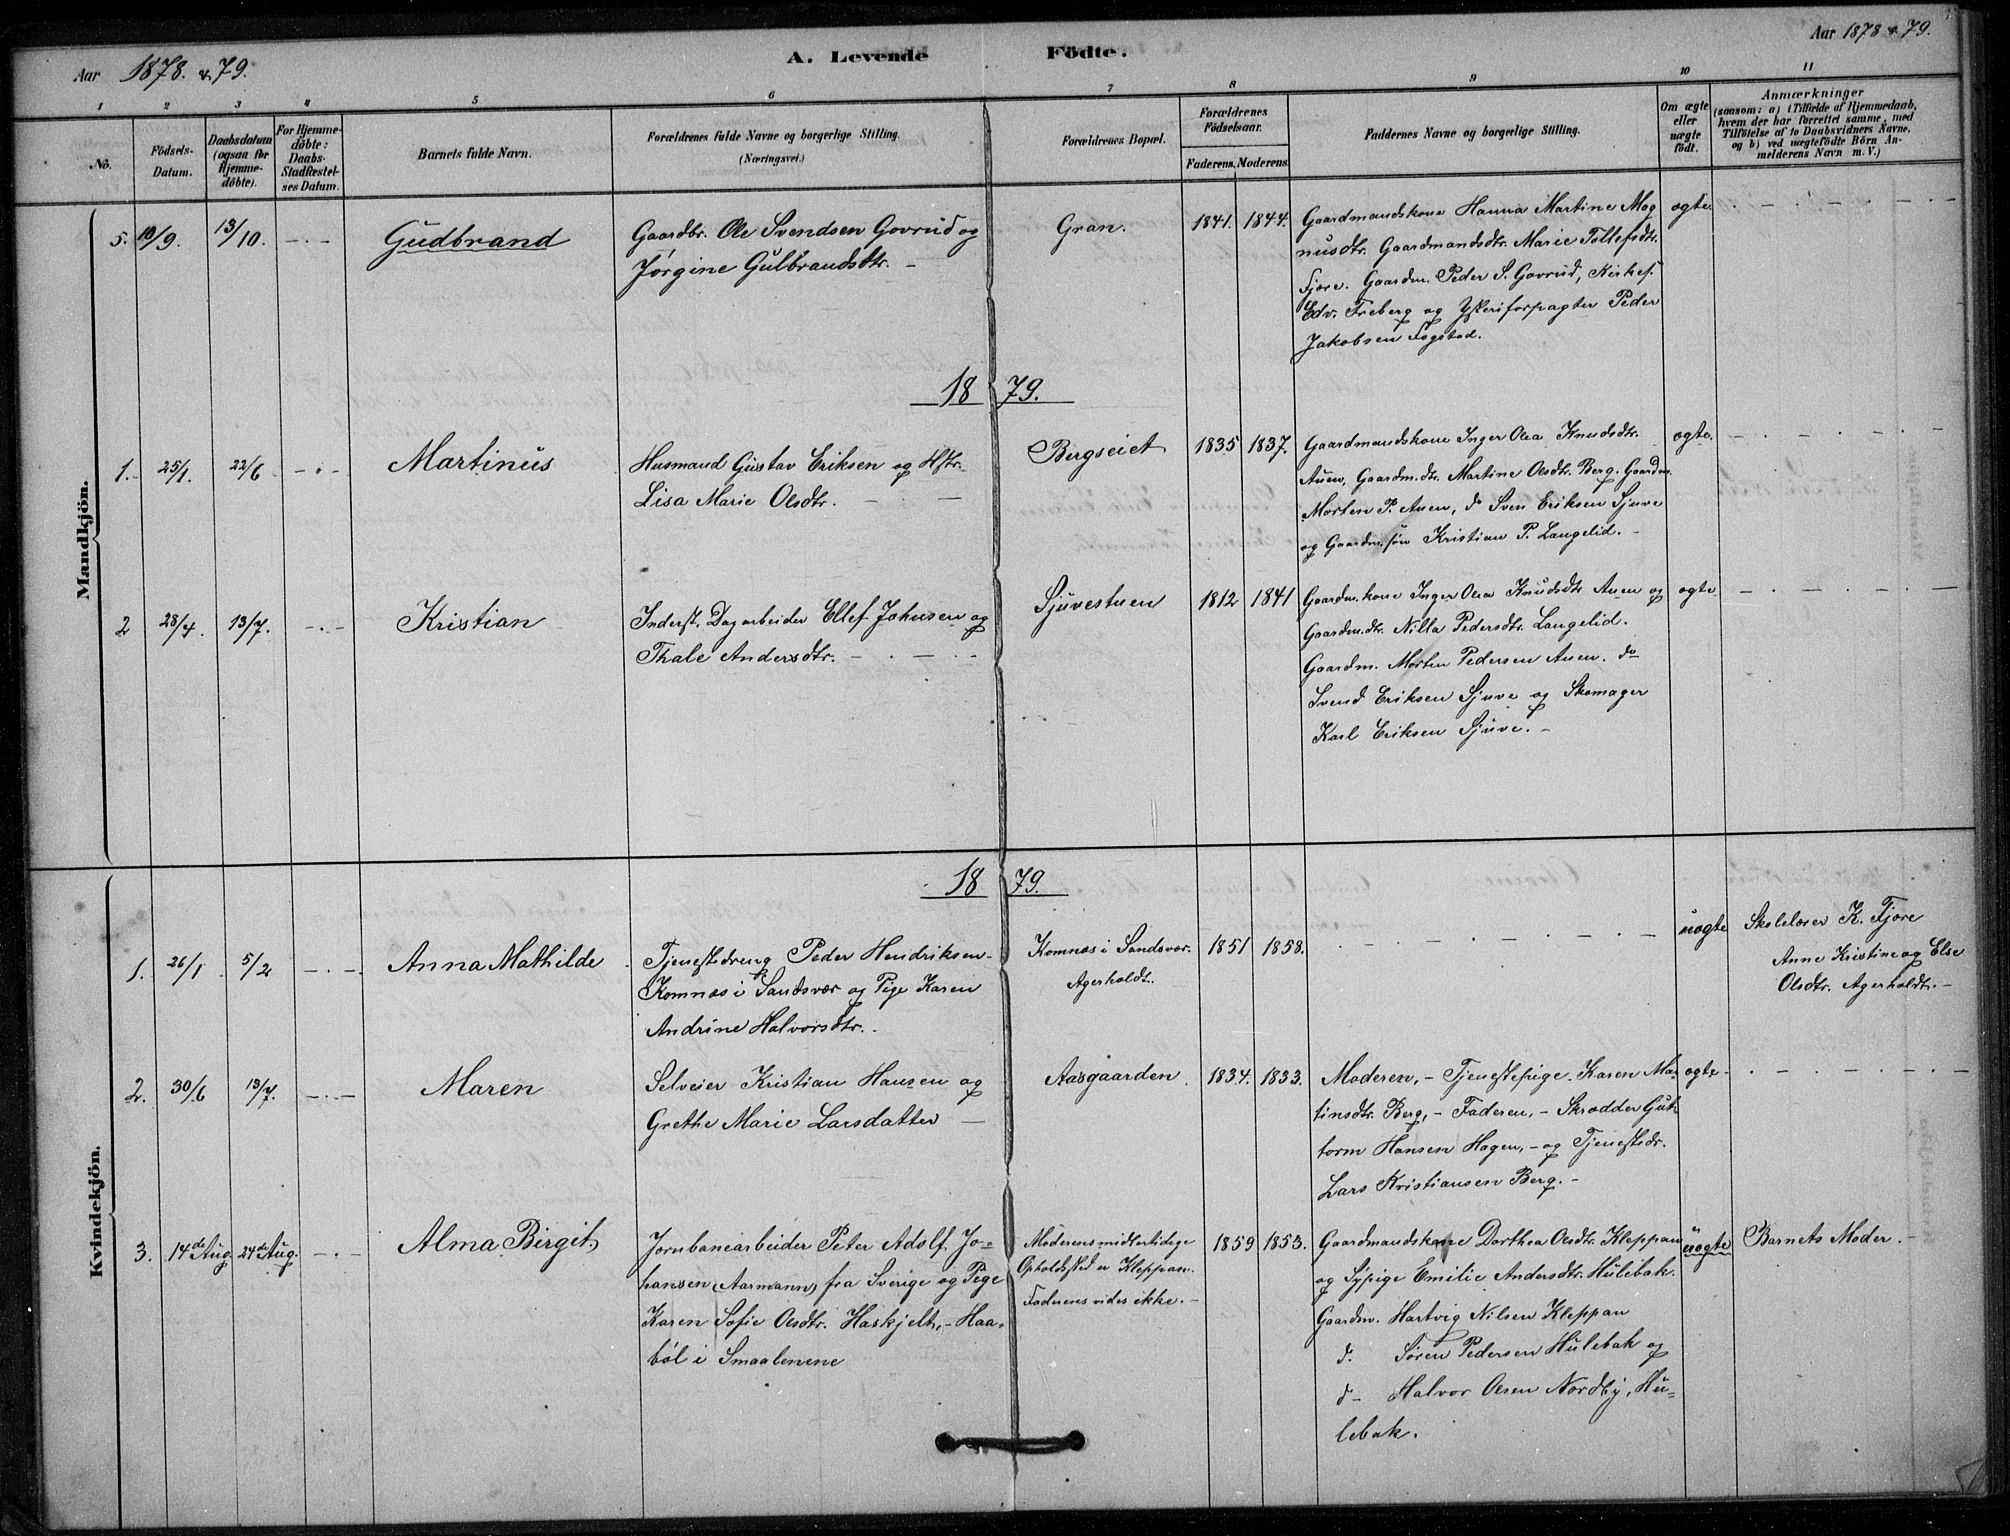 Aar 1878. & 79.
A. Levende Födte.
Aar 1878 & 79.
1 2 3 4 5 6 7 8 9 10 11
No.
Födsels-
Datum.
Daabsdatum
(ogsaa for
Hjemme-
döbte).
For Hjemme-
döbte:
Daabs-
Stadfæstel-
ses Datum.
Barnets fulde Navn.
Forældrenes fulde Navne og borgerlige Stilling.
(Næringsvei.)
Forældrenes Bopæl.
Forældrenes
Födselsaar.
Faderens. Moderens.
Faddernes Navne og borgerlige Stilling.
Om ægte
eller
uægte
födt.
Anmærkninger
(saasom: a) i Tilfælde af Hjemmedaab,
hvem der har forrettet samme, med
Tilföielse af to Daabsvidners Navne.
og b) ved uægtefödte Börn An-
melderens Navn m. V.)
Mandkjön.
5. 19/9. 13/10. Gudbrand
Gaardbr. Ole Svendsen Govrud og
Jørgine Gulbrandsdtr. -
Gran. 1841. 1844.
Gaardmandskone Hanna Martine Mag
nusdtr. Gaardmandsdtr. Marie Tollefsdtr.
Fjøre. Gaardm. Peder S. Govrud, Kirkes.
Edv. Freberg og Yskeriforpagter Peder
Jakobsen Fogstad.
ægte.
1879.
1. 25/1. 22/6 Martinus
Husmand Gustav Eriksen og Hstr.
Lisa Marie Olsdtr.
Bergseiet 1835 1837.
Gaardmandskone Inger Olea Knudsdtr.
Auen, Gaardm.dtr. Martine Olsdtr. Berg. Gaardm.
Morten P. Auen, do Sven Eriksen Sjuve
og Gaardm.søn Kristian P. Langelid. -
ægte.
2 28/4. 13/7. Kristian
Inderst. Dagarbeider Ellef Johnsen og
Thale Andersdtr.
Sjuvestuen 1812 1841
Gaardm.kone Inger Olea Knudsdtr Auen og
Gaardm.dtr. Nilla Pedersdtr. Langelid.
Gaardm. Morten Pedersen Auen. do
Svend Eriksen Sjuve og Skomager
Karl Eriksen Sjuve. -
ægte
Kvindekjön.
1879.
1. 26/1 5/2 Anna Mathilde
Tjenestedreng Peder Hendriksen
Komnæs i Sandsvær og Pige Karen
Andrine Halvorsdtr.
Komnæs i Sandsvær.
Agerholdt.
1851 1858.
uægte
Skolelærer K. Fjøre
Anne Kristine og Else
Olsdtr. Agerholdt. -
2. 30/6 13/7. Maren
Selveier Kristian Hansen og
Grethe Marie Larsdatter
Aasgaarden 1834. 1833.
Moderen, - Tjenestepige Karen Mar-
tinsdtr. Berg, - Faderen, - Skrædder Gut-
torm Hansen Hagen, - og Tjenestedr.
Lars Kristiansen Berg. -
ægte
3. 14de Aug. 24de Aug. Alma Birgit
Jernbanearbeider Peter Adolf Jo-
hansen (Aarmann) fra Sverige og Pige
Karen Sofie Olsdtr. Haskjelt, - Haa-
böl i Smaalenene
Moderens midlertidige
Opholdssted er Kleppan.
Faderens vides ikke. -
1859 1853.
Gaardmandskone Dorthea Olsdtr. Kleppan
og Sypige Emilie Andersdtr. Hulebak.
Gaardm. Hartvig Nilsen Kleppan
d. Søren Pedersen Hulebak og
d- Halvor Olsen Nordby, Hu-
lebak.
uægte
Barnets Moder. -